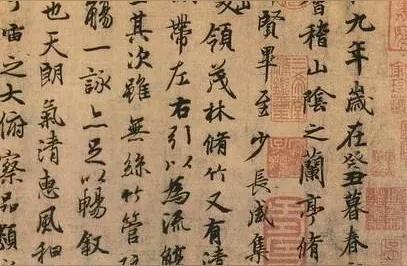 九年歲在癸丑暮春
稽山陰之蘭亭脩
賢畢至少長咸集
領茂林脩竹又有清
帶左右引以為流觴
其次雖無絲竹管
觴一詠亦足以暢敘
也天朗氣清惠風和
宙之大俯察品類